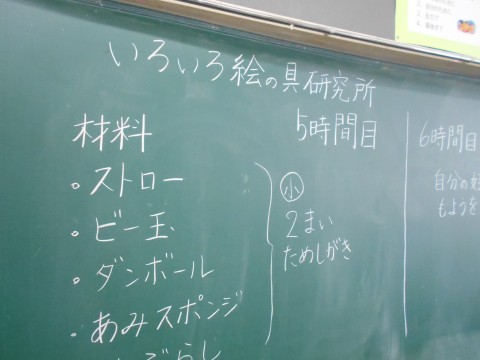 いろいろ絵の具研究所
材料
・ストロー
・ビー玉
・ダンボール
・あみスポンジ
5時間目
小
2まい
ためしがき
6時間目
自分の
もようを